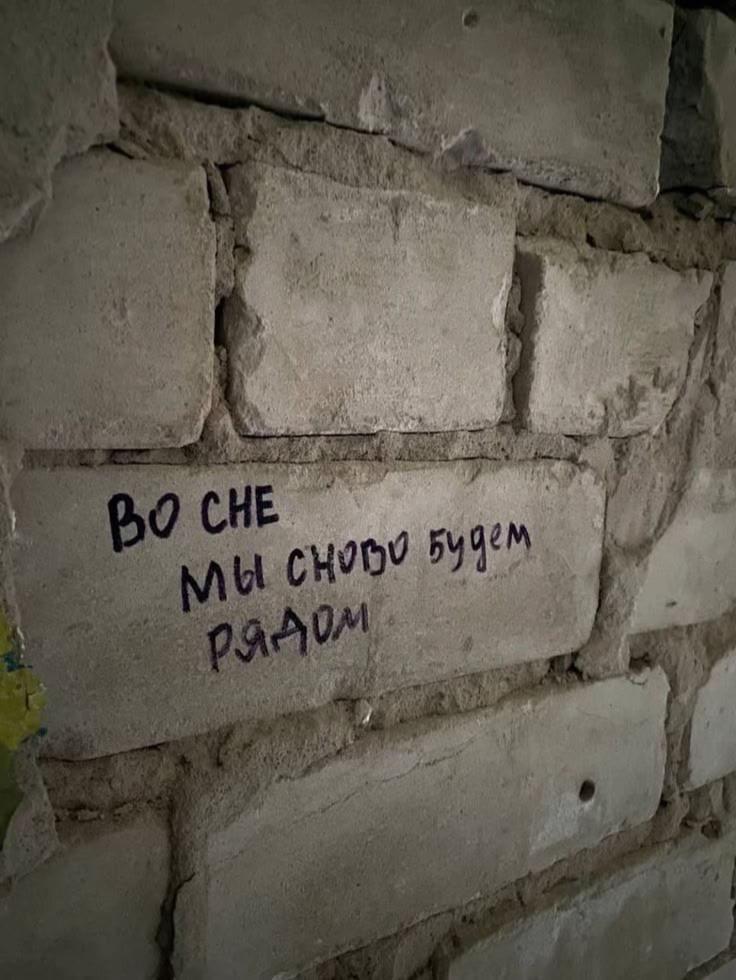 ВО СНЕ
МЫ СНОВО будем
РЯДОМ